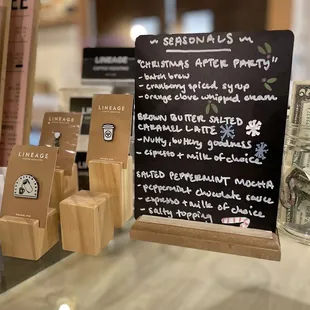 ~ SEASONALS ~
"CHRISTMAS AFTER PARTY"
- batch brew
- cranberry spiced syrup
- orange clove whipped cream
BROWN BUTTER SALTED
CARAMEL LATTE
- Nutty, buttery goodness
- espresso + milk of choice
SALTED PEPPERMINT MOCHA
- peppermint + chocolate sauce
- espresso + milk of choice
- salty topping
LINEAGE
LINEAGE
LINEAGE
LINEAGE